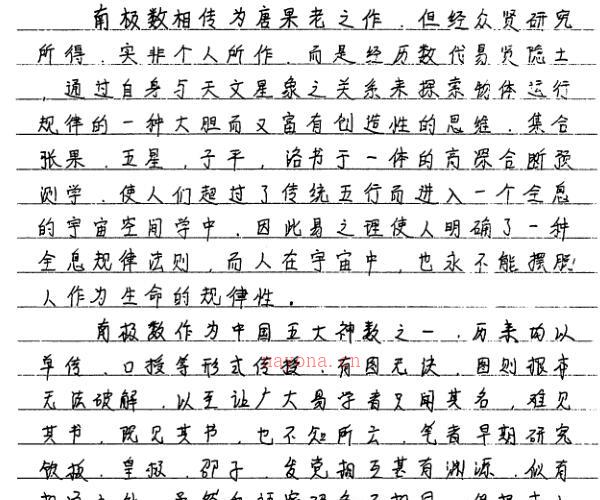 南极数相传为唐果老之作．但经众贤研究
所得．实非个人所作．而是经历数代易贤隐士
，通过自身与天文星象之关系来探索物体运行
规律的一种大胆而又富有创造性的思维．集合
张果．五星，子平，洛书于一体的高深合断预
测学．使人们超过了传统五行而进入一个全息
的宇宙空间学中．因此易之理使人明确了一种
全息规律法则，而人在宇宙中，也永不能摆脱
人作为生命的规律性。
南极数作为中国五大神数之一．历来均以
单传．口授等形式传授．有图无诀．图则根本
nayona.cn
无法破解．以至让广大易学者只闻其名，难见
其书．既见其书，也不知所云．笔者早期研究
铁板．皇极．邵子．发觉相互甚有渊源．似有